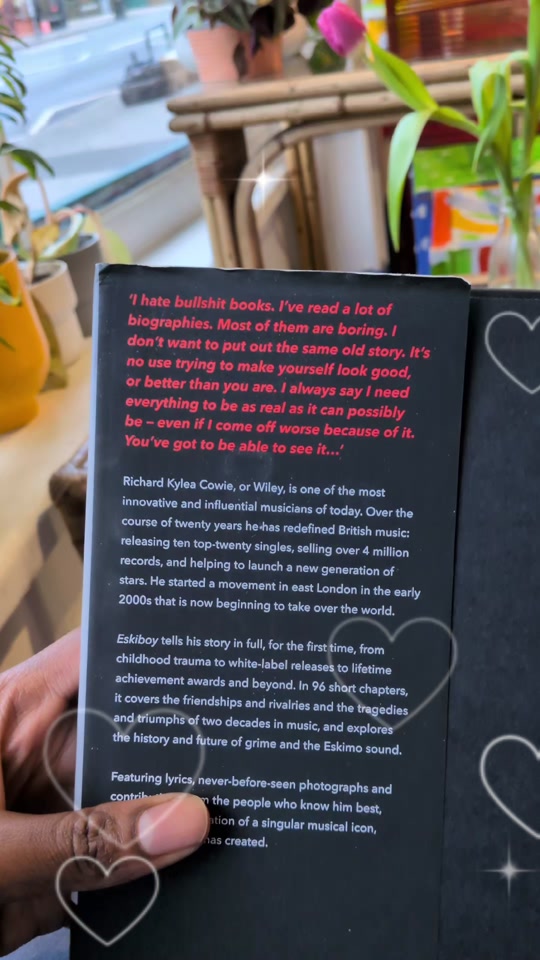 ‘I hate bullshit books. I’ve read a lot of
biographies. Most of them are boring. I
don’t want to put out the same old story. It’s
no use trying to make yourself look good,
or better than you are. I always say I need
everything to be as real as it can possibly
be – even if I come off worse because of it.
You’ve got to be able to see it...’
Richard Kylea Cowie, or Wiley, is one of the most
innovative and influential musicians of today. Over the
course of twenty years he has redefined British music:
releasing ten top-twenty singles, selling over 4 million
records, and helping to launch a new generation of
stars. He started a movement in east London in the early
2000s that is now beginning to take over the world.
Eskiboy tells his story in full, for the first time, from
childhood trauma to white-label releases to lifetime
achievement awards and beyond. In 96 short chapters,
it covers the friendships and rivalries and the tragedies
and triumphs of two decades in music, and explores
the history and future of grime and the Eskimo sound.
Featuring lyrics, never-before-seen photographs and
the people who know him best,
of a singular musical icon,
has created.